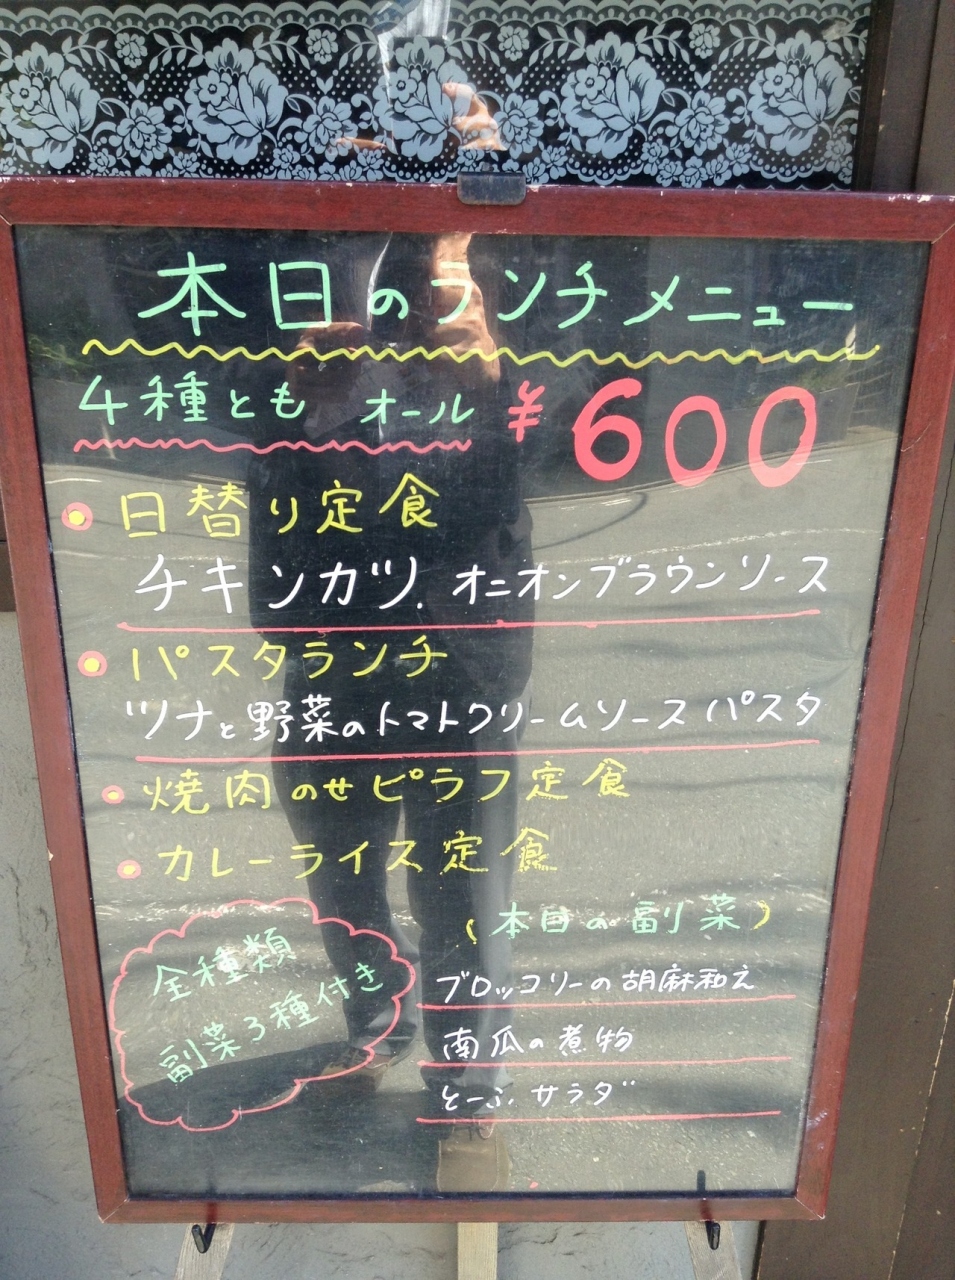 本日のランチメニュー
4種とも オール ¥600
日替り定食
チキンカツ. オニオンブラウンソース
パスタランチ
ツナと野菜のトマトクリームソースパスタ
焼肉のせピラフ定食
カレーライス定食
全種類
副菜3種付き
(本日の副菜)
ブロッコリーの胡麻和え
南瓜の煮物
とーふサラダ